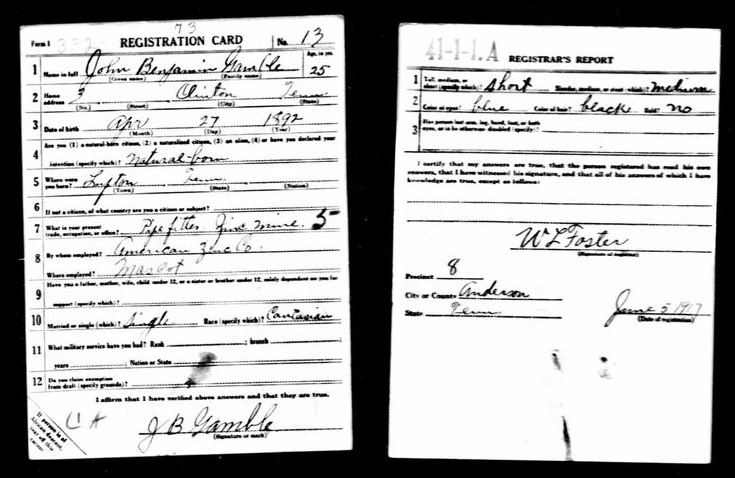 73
Form 1 332 REGISTRATION CARD No. 13
1 Name in full John Benjamin Gamble Age, in yrs. 25
(Given name) (Family name)
2 Home address 3 Clinton Tenn
(No.) (Street) (City) (State)
3 Date of birth Apr 27 1892
(Month) (Day) (Year)
4 Are you (1) a natural-born citizen, (2) a naturalized citizen, (3) an alien, (4) or have you declared your
intention (specify which)? Natural-born
5 Where were you born? Lupton Tenn
(Town) (State) (Nation)
6 If not a citizen, of what country are you a citizen or subject?
7 What is your present trade, occupation, or office? Pipe fitter Zinc mine. 5
8 By whom employed? American Zinc Co.
Where employed? Mascot
9 Have you a father, mother, wife, child under 12, or a sister or brother under 12, solely dependent on you for
support (specify which)?
10 Married or single (which)? Single Race (specify which)? Caucasian
11 What military service have you had? Rank ; branch ;
years ; Nation or State
12 Do you claim exemption from draft (specify grounds)?
I affirm that I have verified above answers and that they are true.
J B Gamble
(Signature or mark)
If person is of
African descent,
tear off this
corner
41-1-1. A REGISTRAR'S REPORT
1 Tall, medium, or short (specify which)? short Slender, medium, or stout (which)? medium
2 Color of eyes? blue Color of hair? black Bald? no
3 Has person lost arm, leg, hand, foot, or both
eyes, or is he otherwise disabled (specify)?
I certify that my answers are true, that the person registered has read his own
answers, that I have witnessed his signature, and that all of his answers of which I have
knowledge are true, except as follows:
W L Foster
(Signature of registrar)
Precinct 8
City or County Anderson
State Tenn
June 5 1917
(Date of registration)